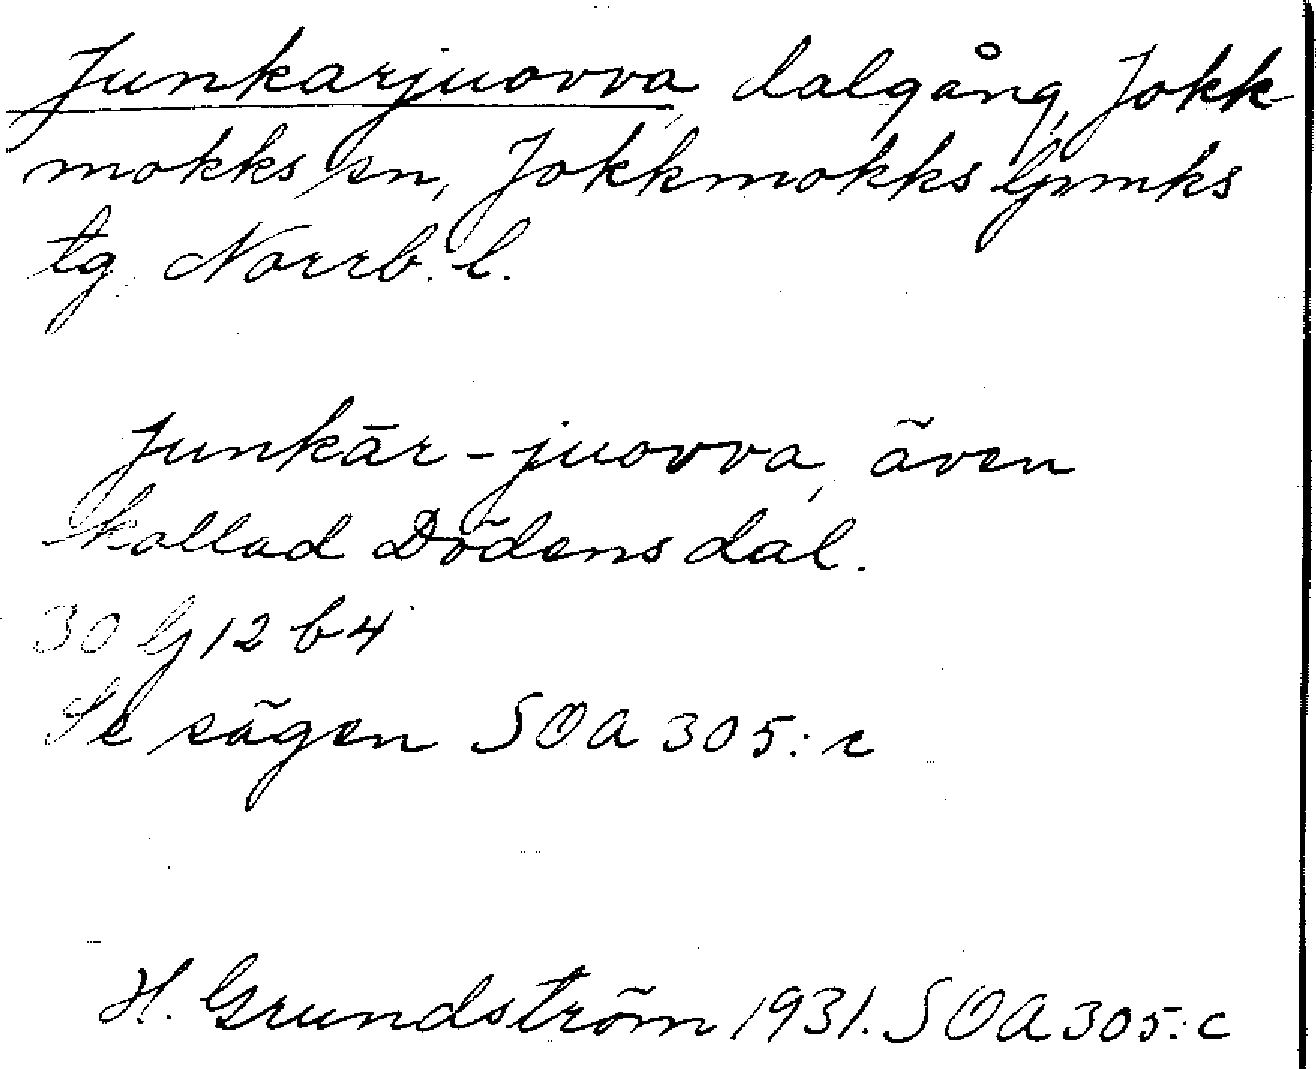 Junkarjuovva, dalgång, Jokk
mokks sn, Jokkmokks lpmks
tg. Norrb. l.
Junkār-juovva, även
kallad Dödens dal.
30 lj 12 b 4
Se sägen SOA 305:c
H. Grundström 1931. SOA 305:c